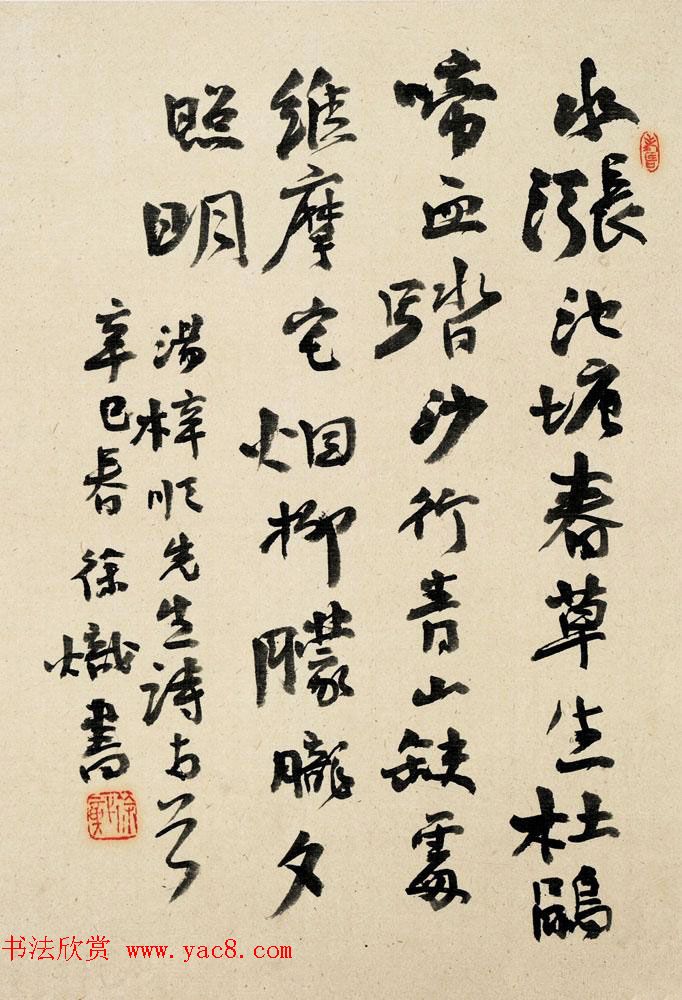 水漲池塘春草生杜鵑
啼血踏沙行青山缺處
維摩宅烟柳朦朧夕
照明
湯梓順先生詩
辛巳春徐熾書
书法欣赏 www.yac8.com